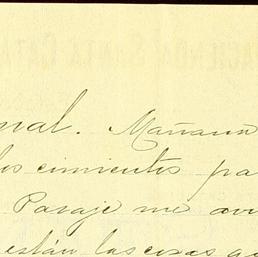 HACIENDA SANTA CATA
nal. Mañana
los cimientos pa
Pasaje me avi
están las cosas a